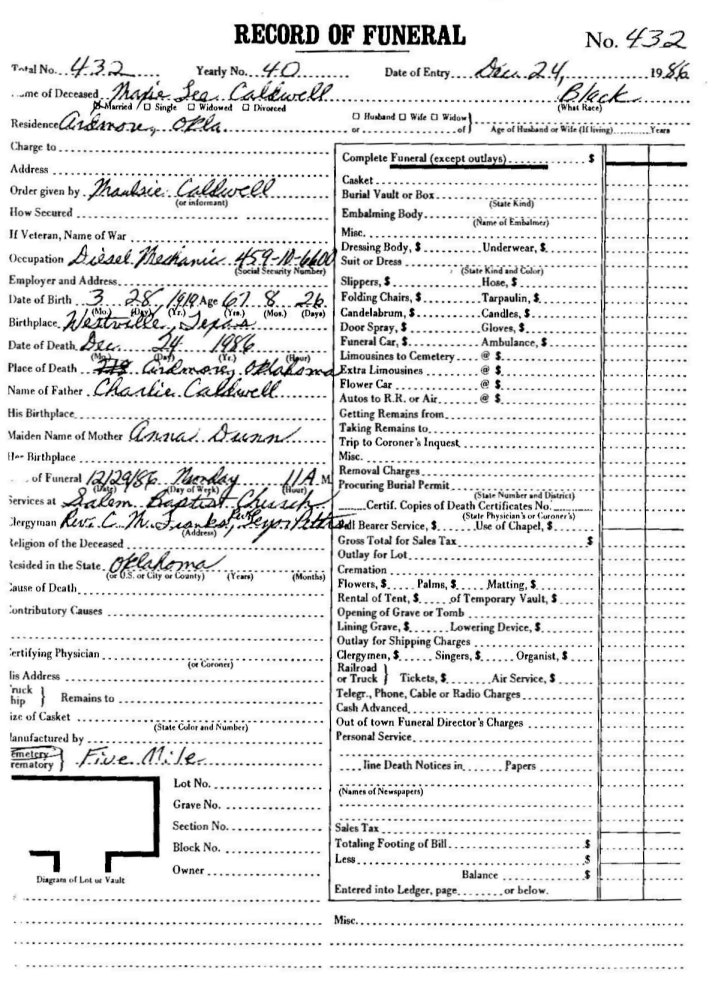 RECORD OF FUNERAL No. 432
Total No. 432 Yearly No. 40 Date of Entry Dec. 24, 1986
me of Deceased Lee Caldwell Black
Married / Single Widowed Divorced (What Race)
Residence Ardmore, Okla. Husband Wife Widow
or of Age of Husband or Wife (If living) Years
Charge to
Address
Order given by Caldwell
(or informant)
How Secured
If Veteran, Name of War
Occupation Diesel Mechanic 459-10-6600
(Social Security Number)
Employer and Address
Date of Birth 3 28 1919 Age 67 8 26
(Mo.) (Day) (Yr.) (Yrs.) (Mos.) (Days)
Birthplace Westville, Texas
Date of Death Dec. 24 1986
(Mo.) (Day) (Yr.) (Hour)
Place of Death Ardmore, Oklahoma
Name of Father Charlie Caldwell
His Birthplace
Maiden Name of Mother Anna Dunn
Her Birthplace
of Funeral 12/29/86 Monday 11 A.M.
(Date) (Day of Week) (Hour)
Services at Salem Baptist Church
Clergyman Rev. C. M. Franks,
(Address)
Religion of the Deceased
Resided in the State Oklahoma
(or U.S. or City or County) (Years) (Months)
Cause of Death
Contributory Causes
Certifying Physician
(or Coroner)
His Address
Truck
Ship } Remains to
Size of Casket
(State Color and Number)
Manufactured by
Cemetery
Crematory } Five Mile
Lot No.
Grave No.
Section No.
Block No.
Owner
Diagram of Lot or Vault
Complete Funeral (except outlays) $
Casket
Burial Vault or Box
(State Kind)
Embalming Body
(Name of Embalmer)
Misc.
Dressing Body, $ Underwear, $
Suit or Dress
(State Kind and Color)
Slippers, $ Hose, $
Folding Chairs, $ Tarpaulin, $
Candelabrum, $ Candles, $
Door Spray, $ Gloves, $
Funeral Car, $ Ambulance, $
Limousines to Cemetery @ $
Extra Limousines @ $
Flower Car @ $
Autos to R.R. or Air @ $
Getting Remains from
Taking Remains to
Trip to Coroner's Inquest
Misc.
Removal Charges
Procuring Burial Permit
(State Number and District)
Certif. Copies of Death Certificates No.
(State Physician's or Coroner's)
Pall Bearer Service, $ Use of Chapel, $
Gross Total for Sales Tax $
Outlay for Lot
Cremation
Flowers, $ Palms, $ Matting, $
Rental of Tent, $ of Temporary Vault, $
Opening of Grave or Tomb
Lining Grave, $ Lowering Device, $
Outlay for Shipping Charges
Clergymen, $ Singers, $ Organist, $
Railroad
or Truck } Tickets, $ Air Service, $
Telegr., Phone, Cable or Radio Charges
Cash Advanced
Out of town Funeral Director's Charges
Personal Service
line Death Notices in Papers
(Names of Newspapers)
Sales Tax
Totaling Footing of Bill $
Less $
Balance $
Entered into Ledger, page or below.
Misc.